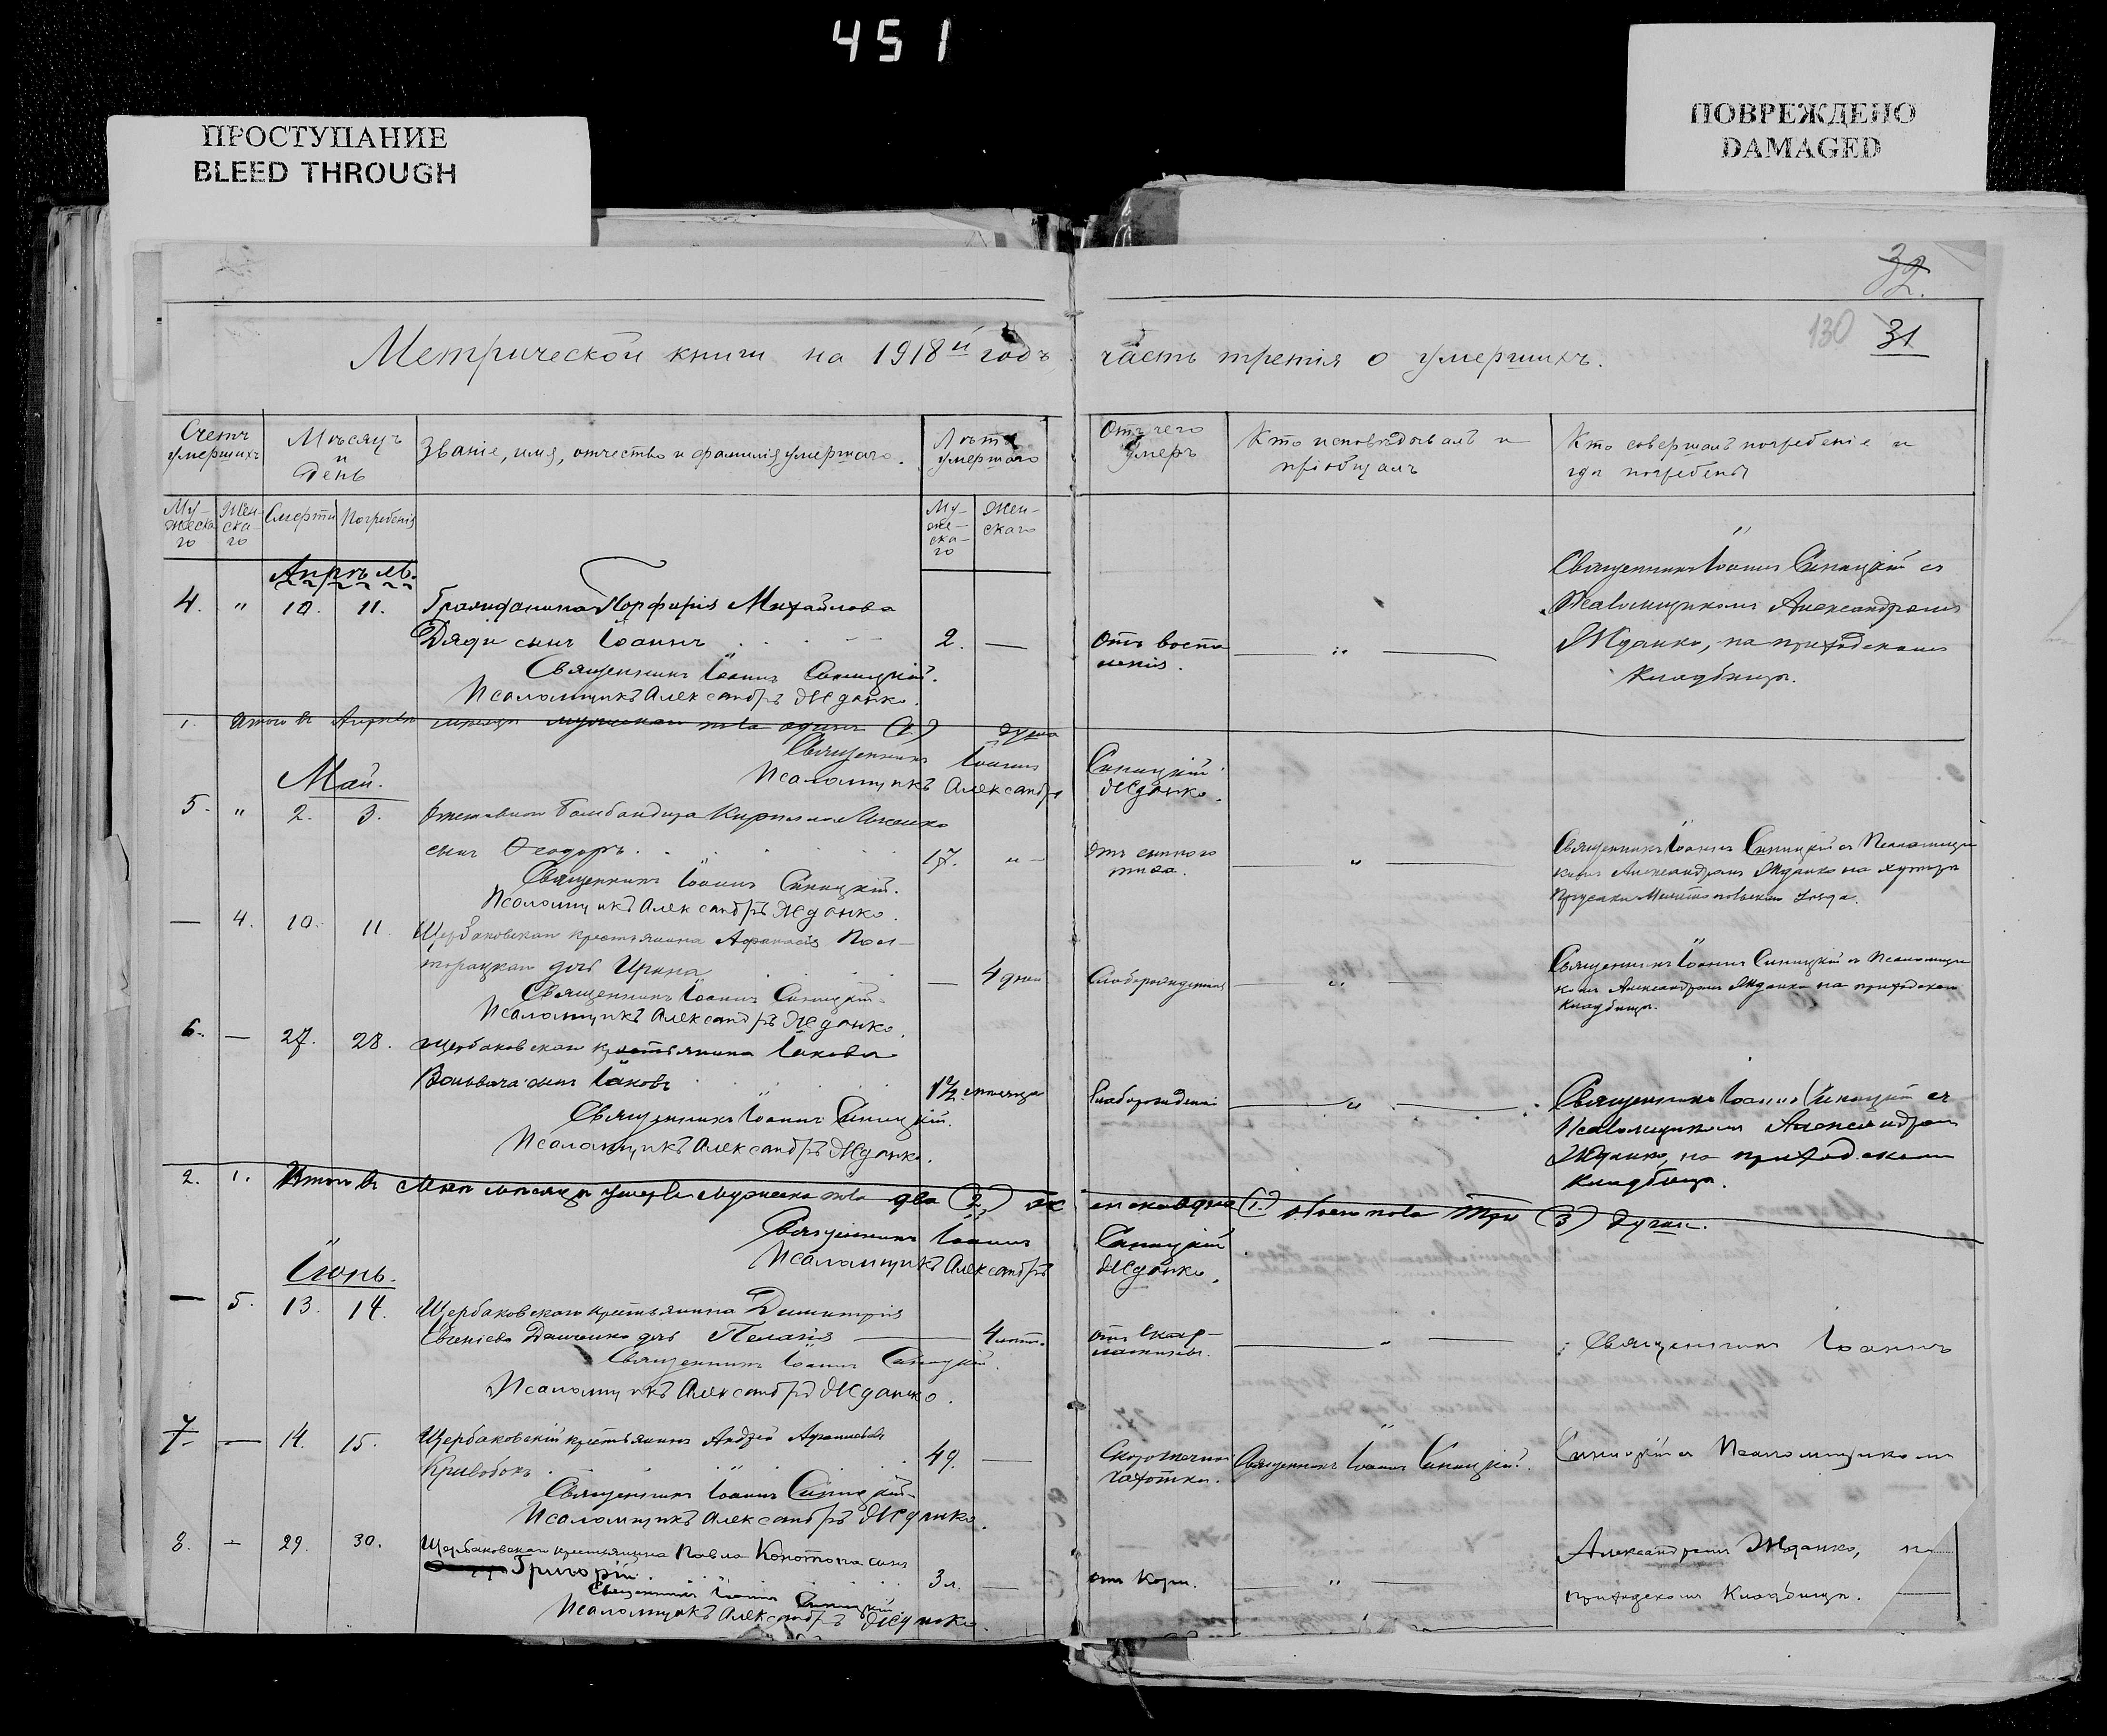 451
ПРОСТУПАНИЕ
BLEED THROUGH
ПОВРЕЖДЕНО
DAMAGED
32.
130 31
Метрической книги на 1918й годъ часть третія о умершихъ.
Счетъ умершихъ
Мѣсяцъ и День
Званіе, имя, отчество и фамилія умершаго.
Лѣта умершаго
Отъ чего умеръ
Кто исповѣдывалъ и пріобщалъ
Кто совершалъ погребеніе и гдѣ погребены
Му-жеска-го
Жен-ска-го
Смерти
Погребенія
Му-же-ска-го
Жен-скаго
Апрѣль.
4. " 10. 11. Гражданина Порфирія Михайлова
Дяди сынъ Іоаннъ 2. —
Отъ воспаленія. — " —
Священникъ Іоаннъ Синицкій съ
Псаломщикомъ Александромъ
Жданко, на приходскомъ
Кладбищѣ.
Священникъ Іоаннъ Синицкій.
Псаломщикъ Александръ Жданко.
1. Итого въ Апрѣлѣ мѣсяцѣ мужескаго пола одинъ (1) душа
Священникъ Іоаннъ Синицкій
Псаломщикъ Александръ Жданко.
Май.
5. " 2. 3. Кирилла
сынъ Ѳеодоръ. 17. " —
Отъ сыпного тифа. — " —
Священникъ Іоаннъ Синицкій съ Псаломщи
комъ Александромъ Жданко на хуторѣ
уѣзда.
Священникъ Іоаннъ Синицкій.
Псаломщикъ Александръ Жданко.
— 4. 10. 11. Щербаковскаго крестьянина Афанасія Пол-
торацкаго дочь Ирина — 4 дней
Слаборожденная — " —
Священникъ Іоаннъ Синицкій съ Псаломщи
комъ Александромъ Жданко на приходскомъ
Кладбищѣ.
Священникъ Іоаннъ Синицкій
Псаломщикъ Александръ Жданко.
6. — 27. 28. Щербаковскаго крестьянина Іакова
сынъ Іаковъ 1½ мѣсяца
— " —
Священникъ Іоаннъ Синицкій съ
Псаломщикомъ Александромъ
Жданко, на приходскомъ
Кладбищѣ.
Священникъ Іоаннъ Синицкій.
Псаломщикъ Александръ Жданко.
2. 1. Итого въ Маѣ мѣсяцѣ умерло мужеска пола два (2) женска одна (1) обоего пола три (3) души.
Священникъ Іоаннъ Синицкій
Псаломщикъ Александръ Жданко.
Іюнь.
— 5. 13. 14. Щербаковскаго крестьянина Димитрія
Евгеніева Данченко дочь Пелагія — 4 лѣт.
отъ Скар-
латины. — " —
Священникъ Іоаннъ
Священникъ Іоаннъ Синицкій.
Псаломщикъ Александръ Жданко.
7. — 14. 15. Щербаковскій крестьянинъ Андрей
Кривобокъ 49. —
Скоротечной
чахотки.
Священникъ Іоаннъ Синицкій.
Синицкій съ Псаломщикомъ
Священникъ Іоаннъ Синицкій
Псаломщикъ Александръ Жданко.
8. — 29. 30. Щербаковскаго крестьянина Павла Конотопа сынъ
Григорій 3 л. —
отъ Кори. — " —
Александромъ Жданко, на
приходскомъ Кладбищѣ.
Священникъ Іоаннъ Синицкій
Псаломщикъ Александръ Жданко.